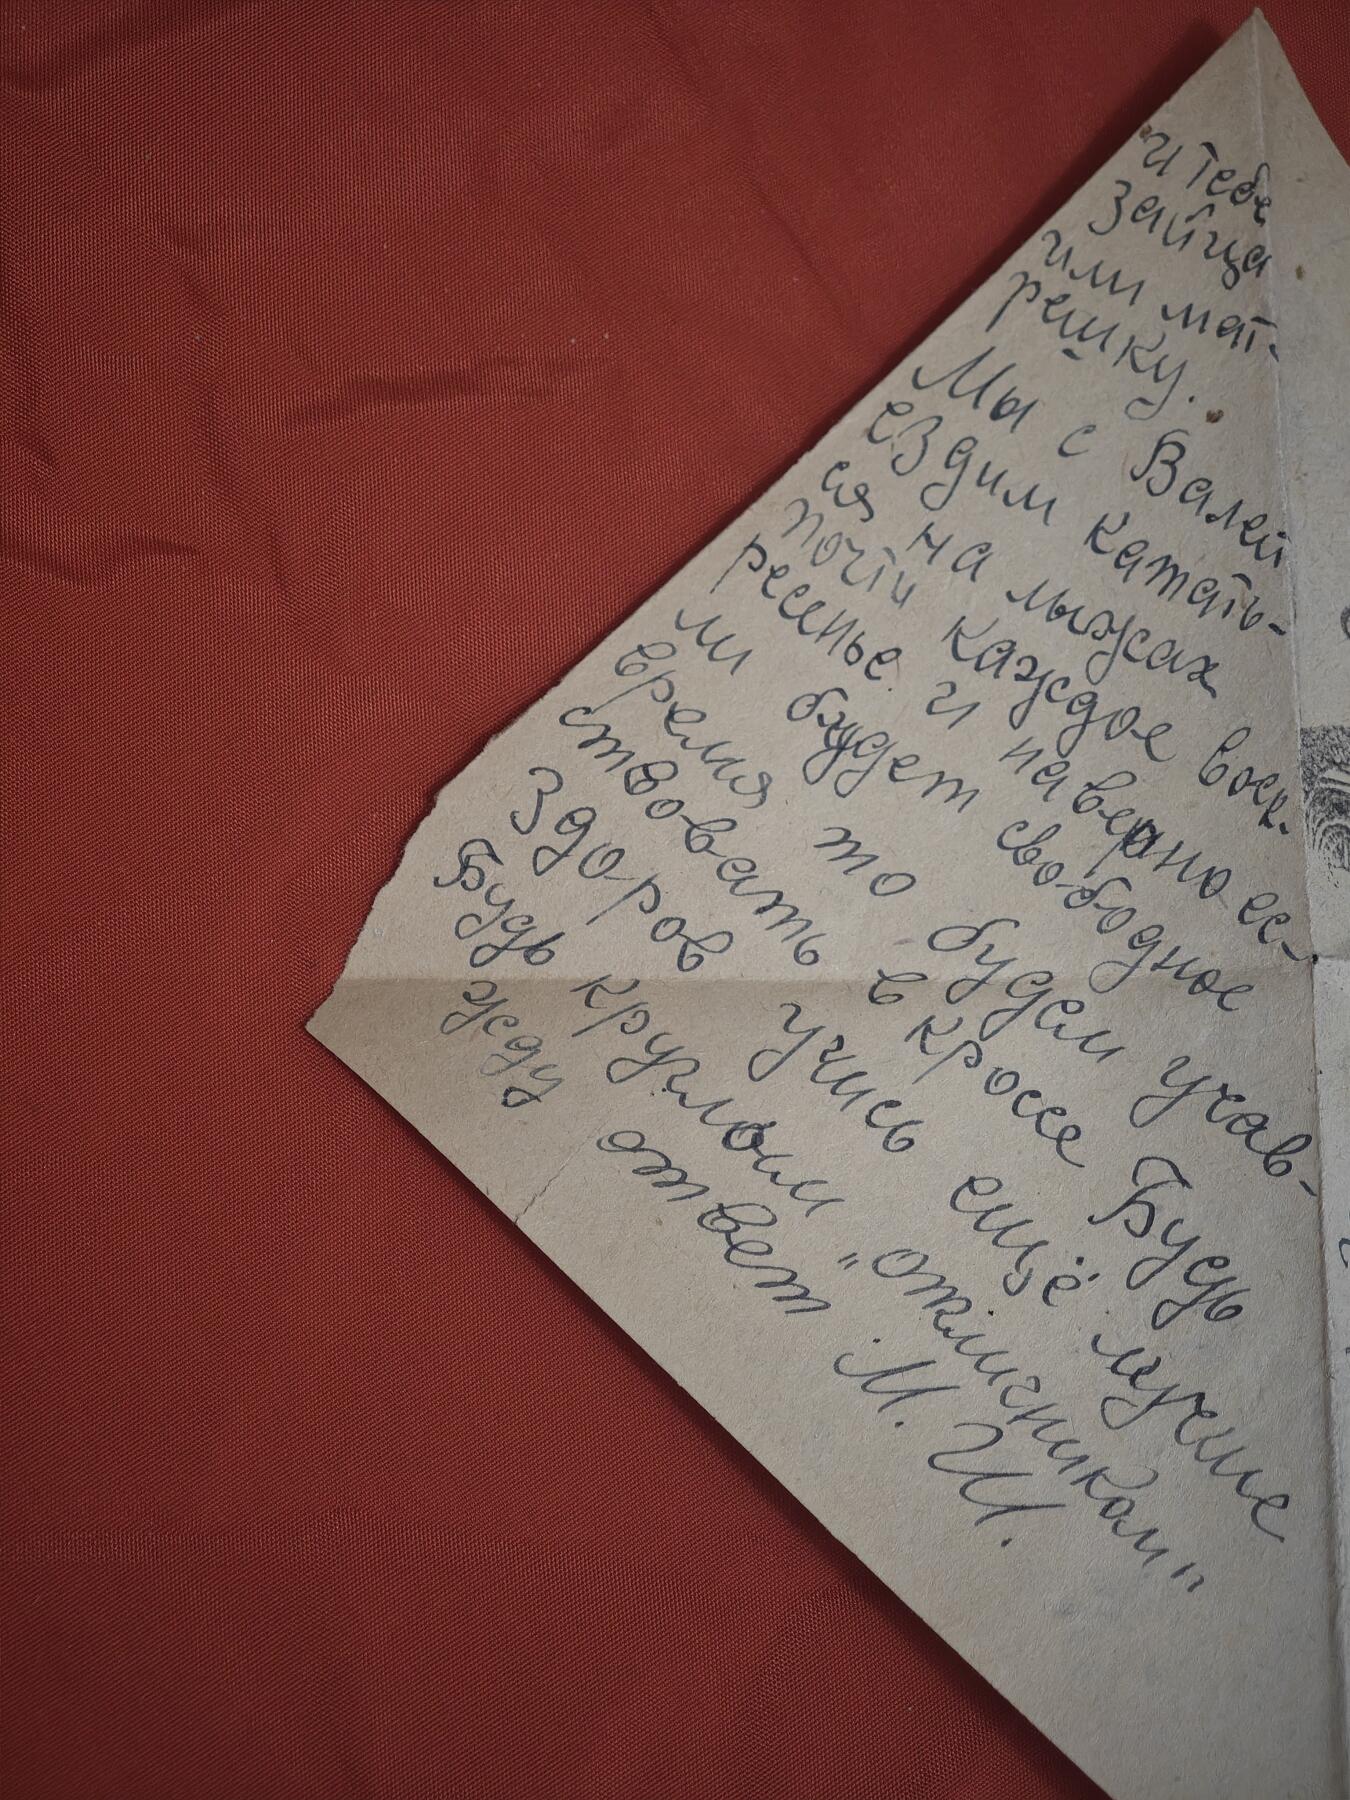 и тебе
зайца
или мат-
решку.
Мы с Валей
ездим катать-
ся на лыжах
почти каждое воск-
ресенье и наверно ес-
ли будет свободное
время то будем учав-
ствовать в кроссе Будь
Здоров учись ещё лучше
Будь круглым „отличником"
жду ответ М. И.